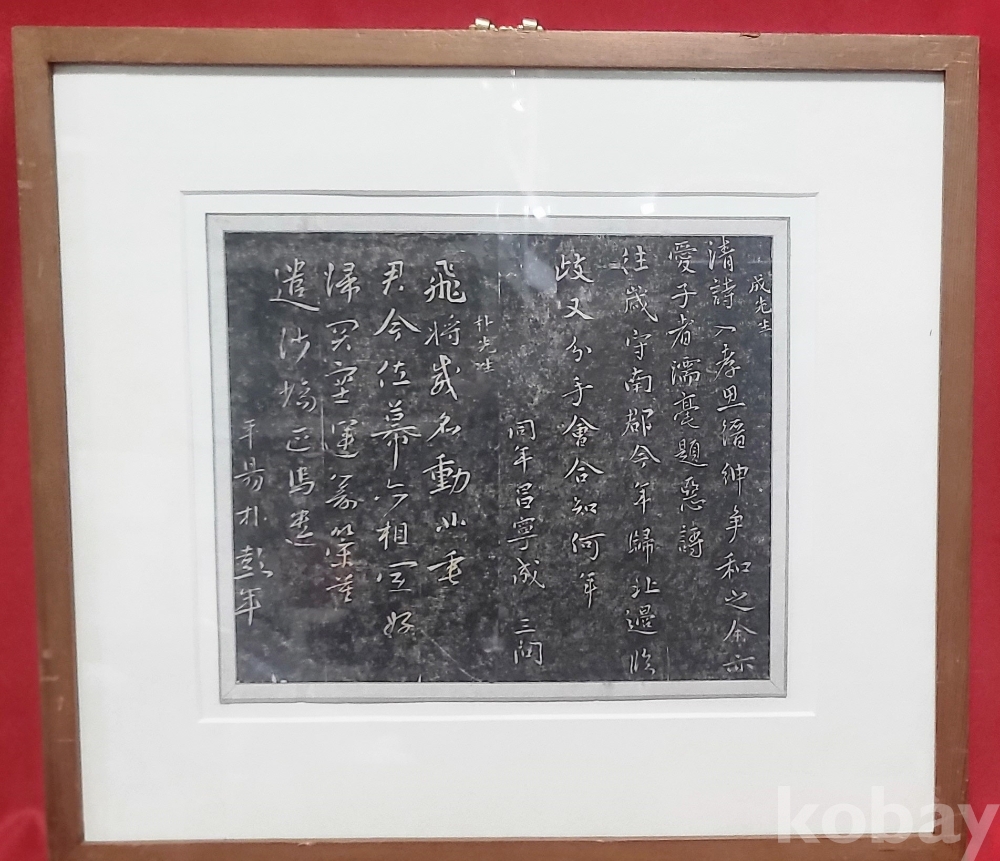 成先生
清詩入孝思縉紳爭和之余亦
愛子者濡毫題惡詩
往歲守南郡今年歸北邊臨
歧又分手會合知何年
同年昌寧成三問
朴先生
飛將威名動北垂
君今佐幕亦相宜好
歸罙空運籌策莫
遣沙場匹馬
平陽朴彭年
kobay